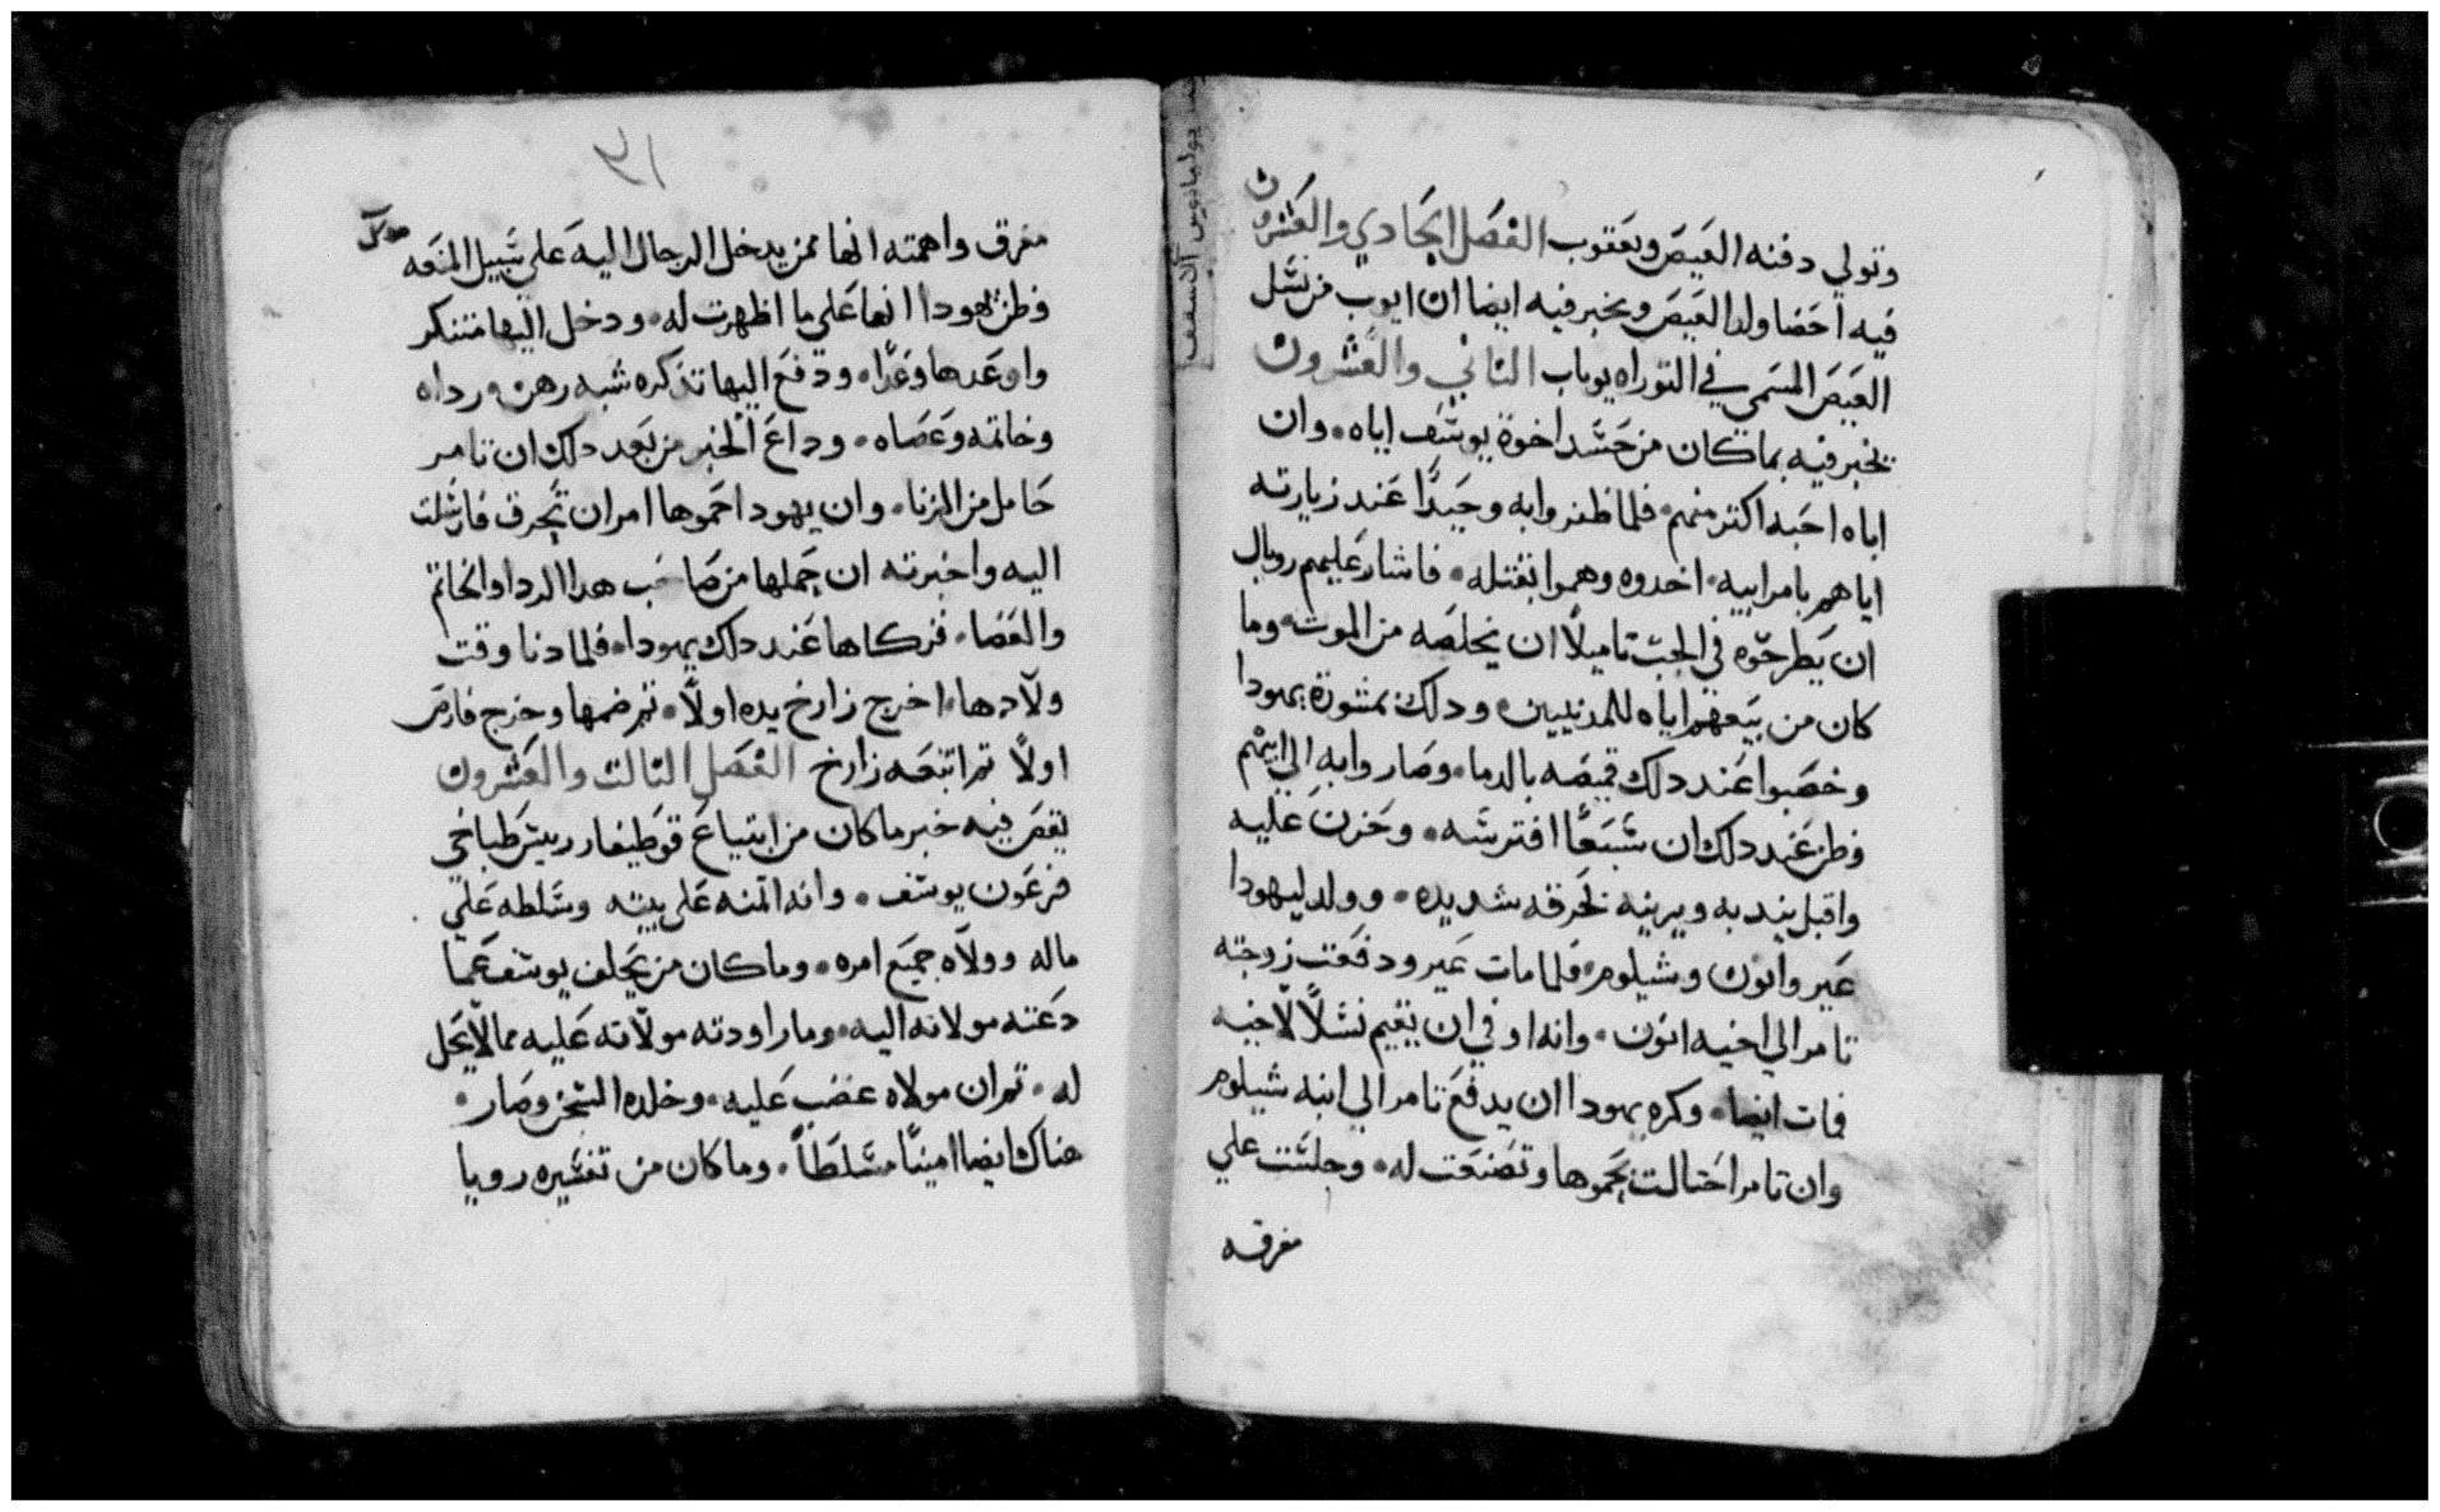 وتولي دفنه العيص ويعقوب الفصل الحادي والعشرون
فيه احصا ولد العيص ويخبر فيه ايضا ان ايوب من نسل
العيص المسمي في التوراه يوباب الثاني والعشرون
يخبر فيه بما كان من حسد اخوة يوسف اياه. وان
اباه احبه اكتر منهم. فلما ظفروا به وحيدًا عند زيارته
اياهم بامر ابيه. اخدوه وهموا بقتله. فاشار عليهم روبال
ان يطرحوه في الجب تاميلًا ان يخلصه من الموت. وما
كان من بيعهم اياه للمدنيين. ودلك بمشورة يهودا
وخصبوا عند دلك قميصه بالدما. وصاروا به الي ابيهم
فظن عند دلك ان سبعًا افترسه. وحزن عليه
واقبل يندبه ويرثيه بحرقه شديده. وولد ليهودا
عير واونان وشيلوم. فلما مات عير ودفعت زوجته
تامر الي اخيه اونان. وانه اوفي ان يقيم نسلًا لاخيه
فمات ايضا. وكره يهودا ان يدفع تامر الي ابنه شيلوم
وان تامر احتالت بحموها وتصنعت له. وجلست علي
مفرقه
٣١
مفرق واهمته انها ممن يدخل الرجال اليه علي سبيل المنعه
فظن يهودا انها علي ما اظهرت له. ودخل اليها متنكر
واوعدها وعدًا. ودفع اليها تدكره شبه رهن. رداه
وخاتمه وعصاه. وداع الخبر من بعد دلك ان تامر
حامل من الزنا. وان يهودا حموها امر ان تحرق فارسلت
اليه واخبرته ان حملها من صاحب هدا الردا والخاتم
والعصا. فزكاها عند دلك يهودا. فلما دنا وقت
ولادها. اخرج زارخ يده اولًا. تم ضمها وخرج فارص
اولًا تم اتبعه زارخ الفصل التالت والعشرون
يقص فيه خبر ما كان من ابتياع قوطيفار رييس طباخي
فرعون يوسف. وانه اتمنه علي بيته وسلطه علي
ماله وولاه جميع امره. وما كان من تخلف يوسف عما
دعته مولاته اليه. وما راودته مولاته عليه مما لا يحل
له. تم ان مولاه غضب عليه. وخلده السجن وصار.
هناك ايضا امينًا مسلطًا. وما كان من تفسيره رويا